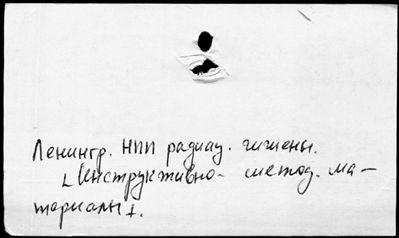 Ленингр. НИИ радиац. гигиены.
[Инструктивно- метод. ма-
териалы].